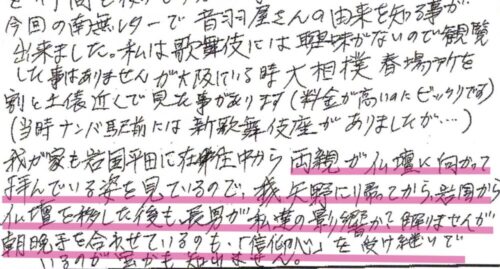 今回の南無レターで音羽屋さんの由来を知る事が
出来ました。私は歌舞伎には興味がないので観覧
した事はありませんが大阪にいる時大相撲春場所を
割と土俵近くで見た事があります(料金が高いのにビックリです)
(当時ナンバ駅前には新歌舞伎座がありましたが…)
我が家も岩国平田に在住中から両親が仏壇に向かって
拝んでいる姿を見ているので、我矢野に帰ってから、岩国から
仏壇を移した後も、長男が私達の影響かて解りませんが
朝晩手を合わせているのも・「信仰心」を受け継いで
いるのが宝かも知れません。